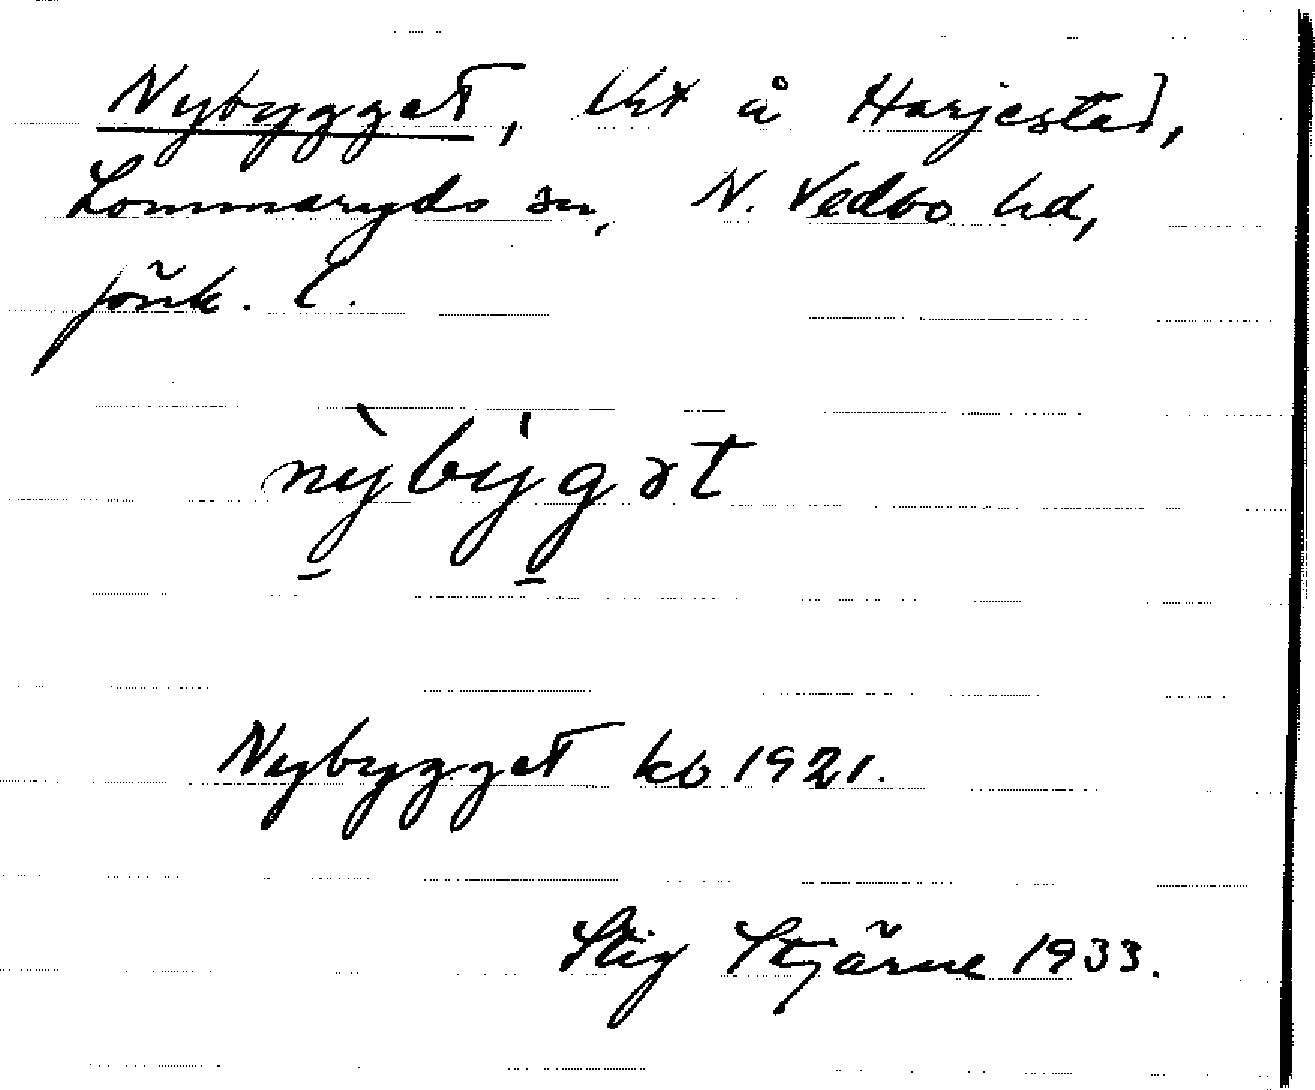 Nybygget, lht å Harjestad,
Lommaryds sn, N. Vedbo hd,
Jönk. l.
nỳbýgət
Nybygget kb 1921.
Stig Stjärne 1933.